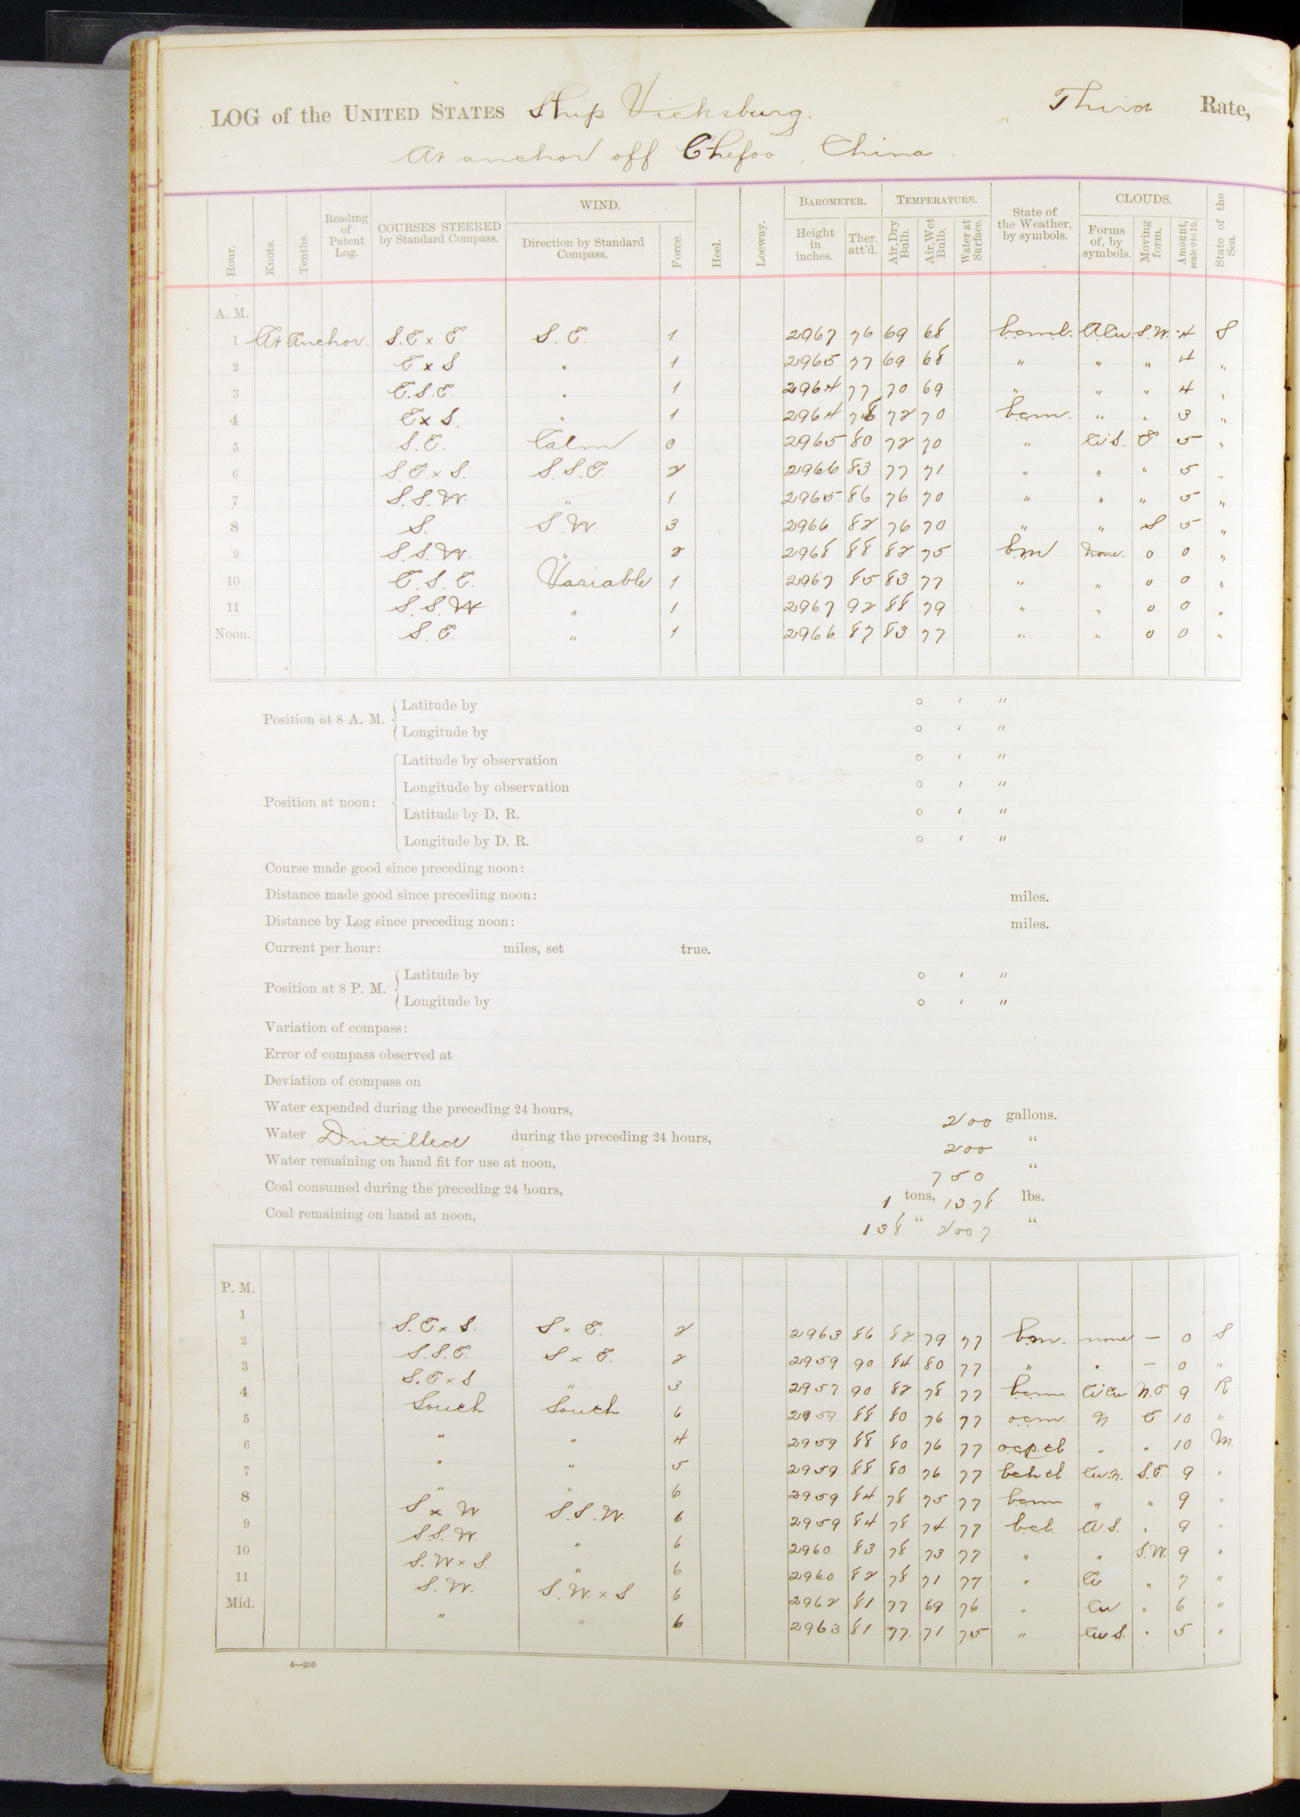 LOG of the UNITED STATES Ship Vicksburg. Third Rate,
At anchor off Chefoo, China.
Hour. Knots. Tenths. Reading of Patent Log. COURSES STEERED by Standard Compass. WIND. Direction by Standard Compass. Force. Heel. Leeway. BAROMETER. Height in inches. Ther. att'd. TEMPERATURE. Air, Dry Bulb. Air, Wet Bulb. Water at Surface. State of the Weather, by symbols. CLOUDS. Forms of, by symbols. Moving form. Amount, scale 0 to 10. State of the Sea.
A. M.
1 At Anchor. S.E. x E. S.E. 1 2967 76 69 68 A.Cu. S.W. 4 S
2 E x S " 1 2965 77 69 68 " " " 4 "
3 E.S.E. " 1 2964 77 70 69 " " " 4 "
4 E x S. " 1 2964 78 72 70 bcm. " " 3 "
5 S.E. Calm 0 2965 80 72 70 " Ci S. E 5 "
6 S.E. x S. S.S.E. 2 2966 83 77 71 " " " 5 "
7 S.S.W. " 1 2965 86 76 70 " " " 5 "
8 S. S.W. 3 2966 82 76 70 " " S 5 "
9 S.S.W. " 2 2968 88 82 75 bm None. 0 0 "
10 E.S.E. Variable 1 2967 85 83 77 " " 0 0 "
11 S.S.W " 1 2967 92 88 79 " " 0 0 "
Noon. S.E. " 1 2966 87 83 77 " " 0 0 "
Position at 8 A. M. Latitude by ° ' "
Longitude by ° ' "
Position at noon: Latitude by observation ° ' "
Longitude by observation ° ' "
Latitude by D. R. ° ' "
Longitude by D. R. ° ' "
Course made good since preceding noon:
Distance made good since preceding noon: miles.
Distance by Log since preceding noon: miles.
Current per hour: miles, set true.
Position at 8 P. M. Latitude by ° ' "
Longitude by ° ' "
Variation of compass:
Error of compass observed at
Deviation of compass on
Water expended during the preceding 24 hours, 200 gallons.
Water Distilled during the preceding 24 hours, 200 "
Water remaining on hand fit for use at noon, 750 "
Coal consumed during the preceding 24 hours, 1 tons, 1378 lbs.
Coal remaining on hand at noon, 138 " 2007 "
P. M.
1 S.E. x S. S x E. 2 2963 86 82 79 77 bm. none — 0 S
2 S.S.E. S x E. 2 2959 90 84 80 77 " " — 0 "
3 S.E x S " 3 2957 90 82 78 77 bcm Ci Cu N.E. 9 R
4 South South 6 2959 88 80 76 77 ocm. N E 10 "
5 " " 4 2959 88 80 76 77 " " 10 M.
6 " " 5 2959 88 80 76 77 Cu.N. S.E. 9 "
7 " " 6 2959 84 78 75 77 bcm " " 9 "
8 S x W S.S.W. 6 2959 84 78 74 77 bcl. A.S. " 9 "
9 S.S.W. " 6 2960 83 78 73 77 " " S.W. 9 "
10 S.W x S. " 6 2960 82 78 71 77 " Ci " 7 "
11 S.W. S.W. x S 6 2962 81 77 69 76 " Cu " 6 "
Mid. " " 6 2963 81 77 71 75 " Cu S. " 5 "
4—265